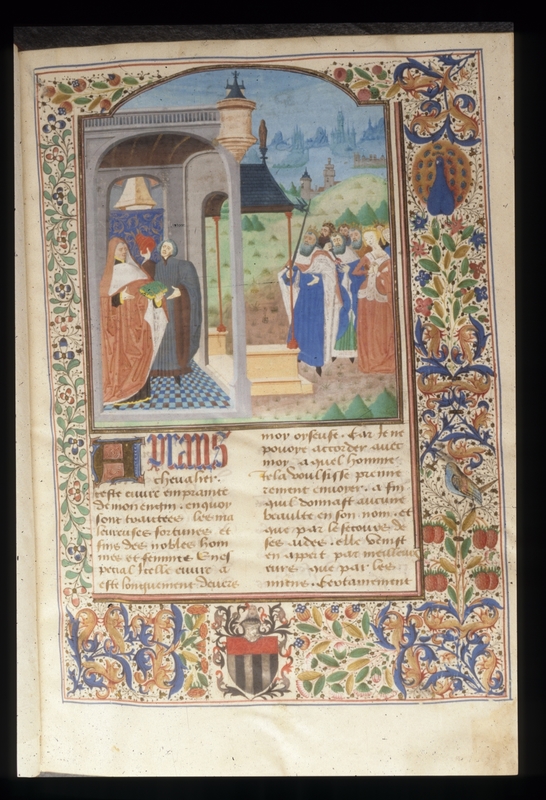 Grans
chevalier.
ceste euure emprainte
de mon engin. en quoy
sont traittees les ma
leureuses fortunes et
fins des nobles hom
mes et femmes. Et ne
icelle euure a
este longuement deuers
moy oyseuse. Car Je ne
pouoye accorder auec
moy. a quel homme
Je la voulsisse premie
rement enuoyer. a fin
quil donnast aucune
beaulte en son nom. et
que par le secours de
ses aides. elle venist
en appert par meilleurs
eurs. que par les
miens. Certainement